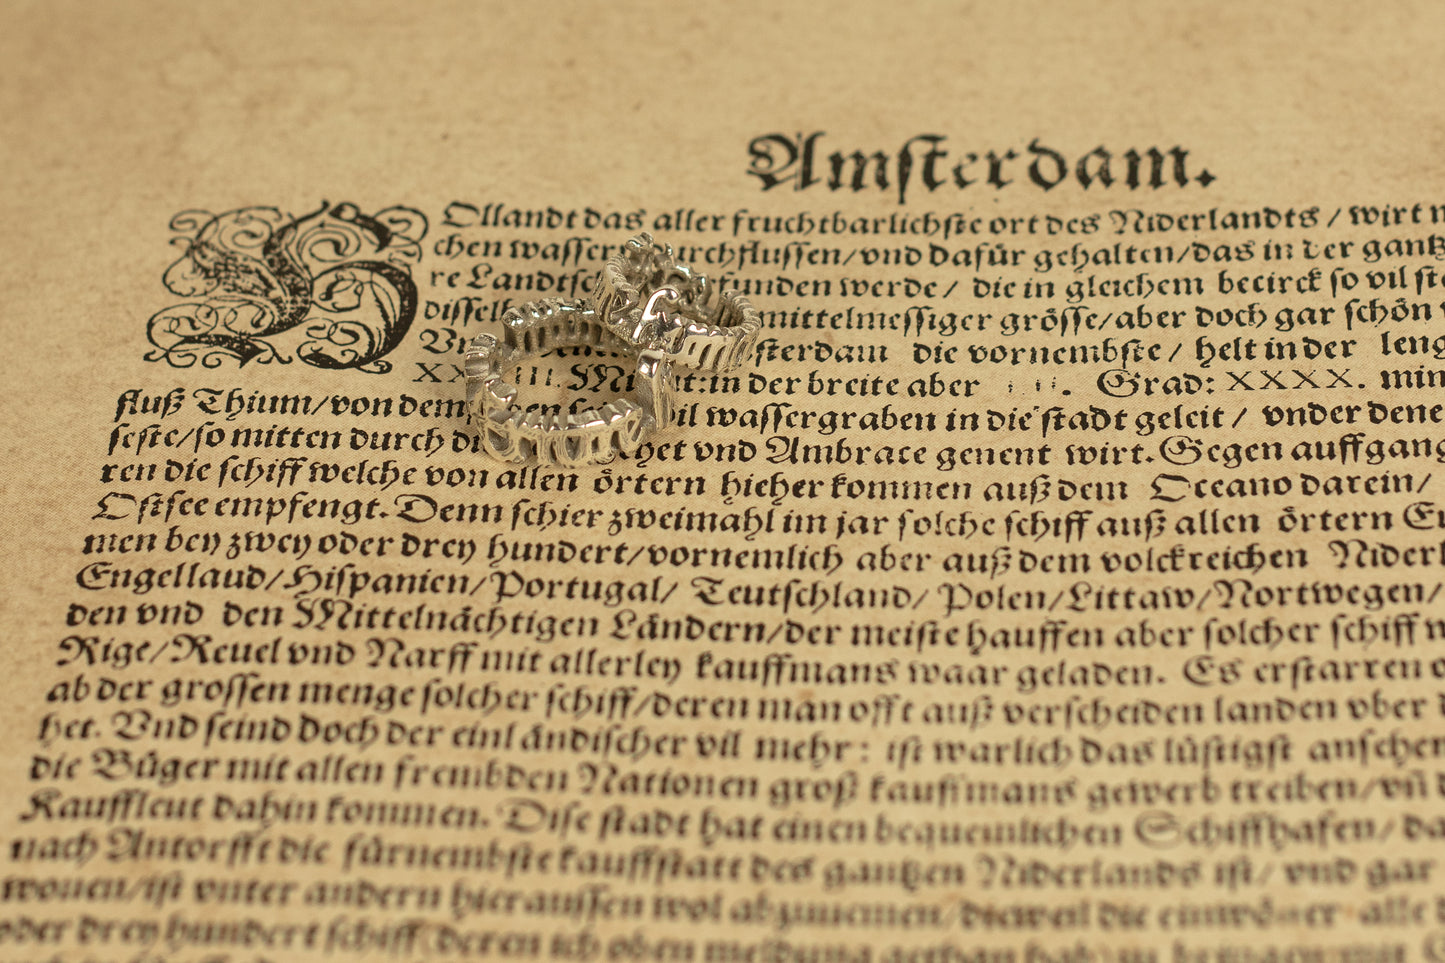 Amsterdam.
Ollandt das aller fruchtbarlichste ort des Niderlandts / wirt
chen wassern durchflussen/vnd dafür gehalten/das in der gantz
re Landtsch funden werde / die in gleichem becirck so vil
dissel mittelmessiger grösse/aber doch gar schön
sterdam die vornembste / helt in der leng
XX III. Mi t: in der breite aber Grad: XXXX. min
fluß Thium/von dem gen vil wassergraben in die stadt geleit / vnder dene
feste/so mitten durch di chet vnd Ambrace genent wirt. Gegen auffgang
ren die schiff welche von allen örtern hieher kommen auß dem Oceano darein/
Ostsee empfengt. Denn schier zweimahl im jar solche schiff auß allen örtern
men bey zwey oder drey hundert/vornemlich aber auß dem volckreichen Niderl
Engellaud/Hispanien/Portugal/ Teutschland/ Polen/Littaw/Nortwegen/
den vnd den Mittelnächtigen Ländern/der meiste hauffen aber solcher schiff
Rige/Reuel vnd Narff mit allerley kauffmans waar geladen. Es erstarren
ab der grossen menge solcher schiff/deren man offt auß verscheiden landen vber
het. Vnd seind doch der einländischer vil mehr: ist warlich das lüstigst ansehen
die Büger mit allen frembden Nationen groß kauffmans gewerb treiben/vñ
Kauffleut dahin kommen. Dise stadt hat einen bequemlichen Schiffhafen/
nach Antorff die fürnembste kauffstatt des gantzen Niderlands ist/ vnd gar
wonen/ist vnter andern hieraussen wol abzunemen/dieweil die einwöner alle
oder drey hundert schiff/deren ich oben meldung gethan hab/